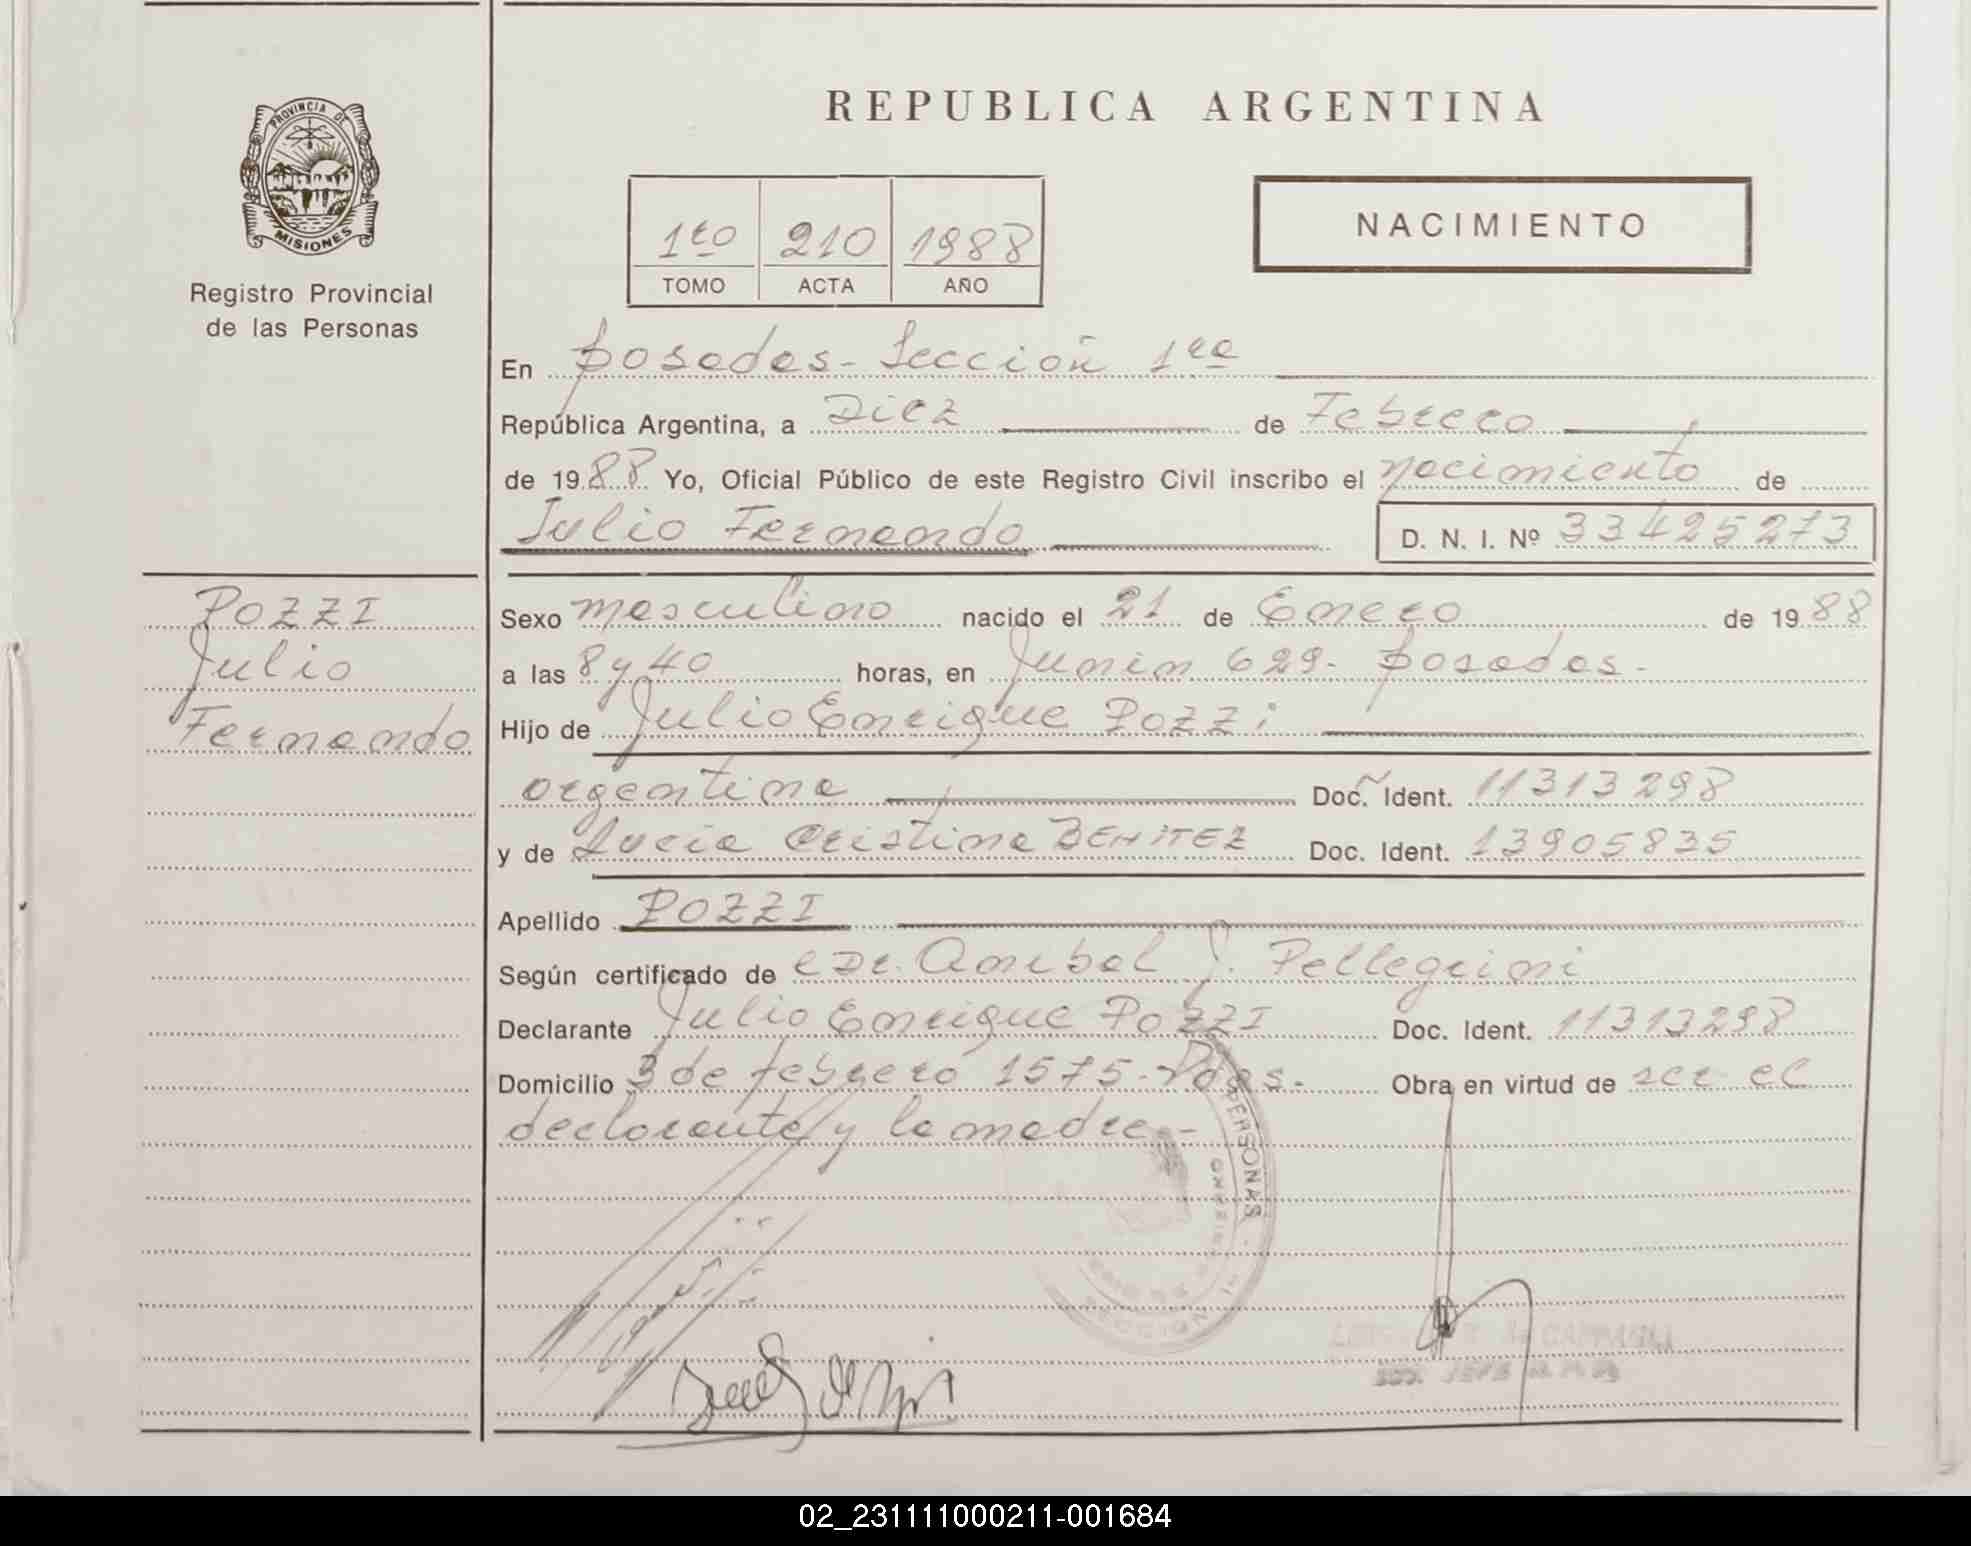 PROVINCIA DE
MISIONES
Registro Provincial
de las Personas
REPUBLICA ARGENTINA
1ro 210 1988
TOMO ACTA AÑO
NACIMIENTO
En Posadas - Sección 1ra
República Argentina, a Diez de Febrero
de 1988 Yo, Oficial Público de este Registro Civil inscribo el nacimiento de
Julio Fernando
D. N. I. Nº 33425273
POZZI
Julio
Fernando
Sexo masculino nacido el 21 de Enero de 1988
a las 8 y 40 horas, en Junin 629. Posadas-
Hijo de Julio Enrique Pozzi
argentina Doc. Ident. 11313298
y de Lucia Cristina BENITEZ Doc. Ident. 13905835
Apellido POZZI
Según certificado de Dr. Anibal J. Pellegrini
Declarante Julio Enrique POZZI Doc. Ident. 11313298
Domicilio 3 de febrero 1575-Pdas. Obra en virtud de ser el
declarante y la madre.-
PERSONAS
SECCION
02_231111000211-001684